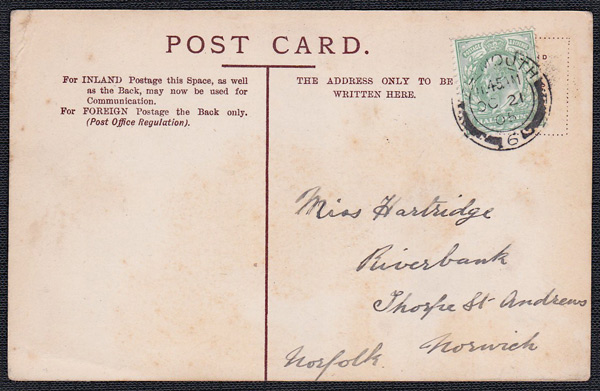 POST CARD.
For INLAND Postage this Space, as well
as the Back, may now be used for
Communication.
For FOREIGN Postage the Back only.
(Post Office Regulation).
THE ADDRESS ONLY TO BE
WRITTEN HERE.
OUTH
11 45 AM
OC 21
05
16
Miss Hartridge
Riverbank
Thorpe St Andrews
Norwich
Norfolk